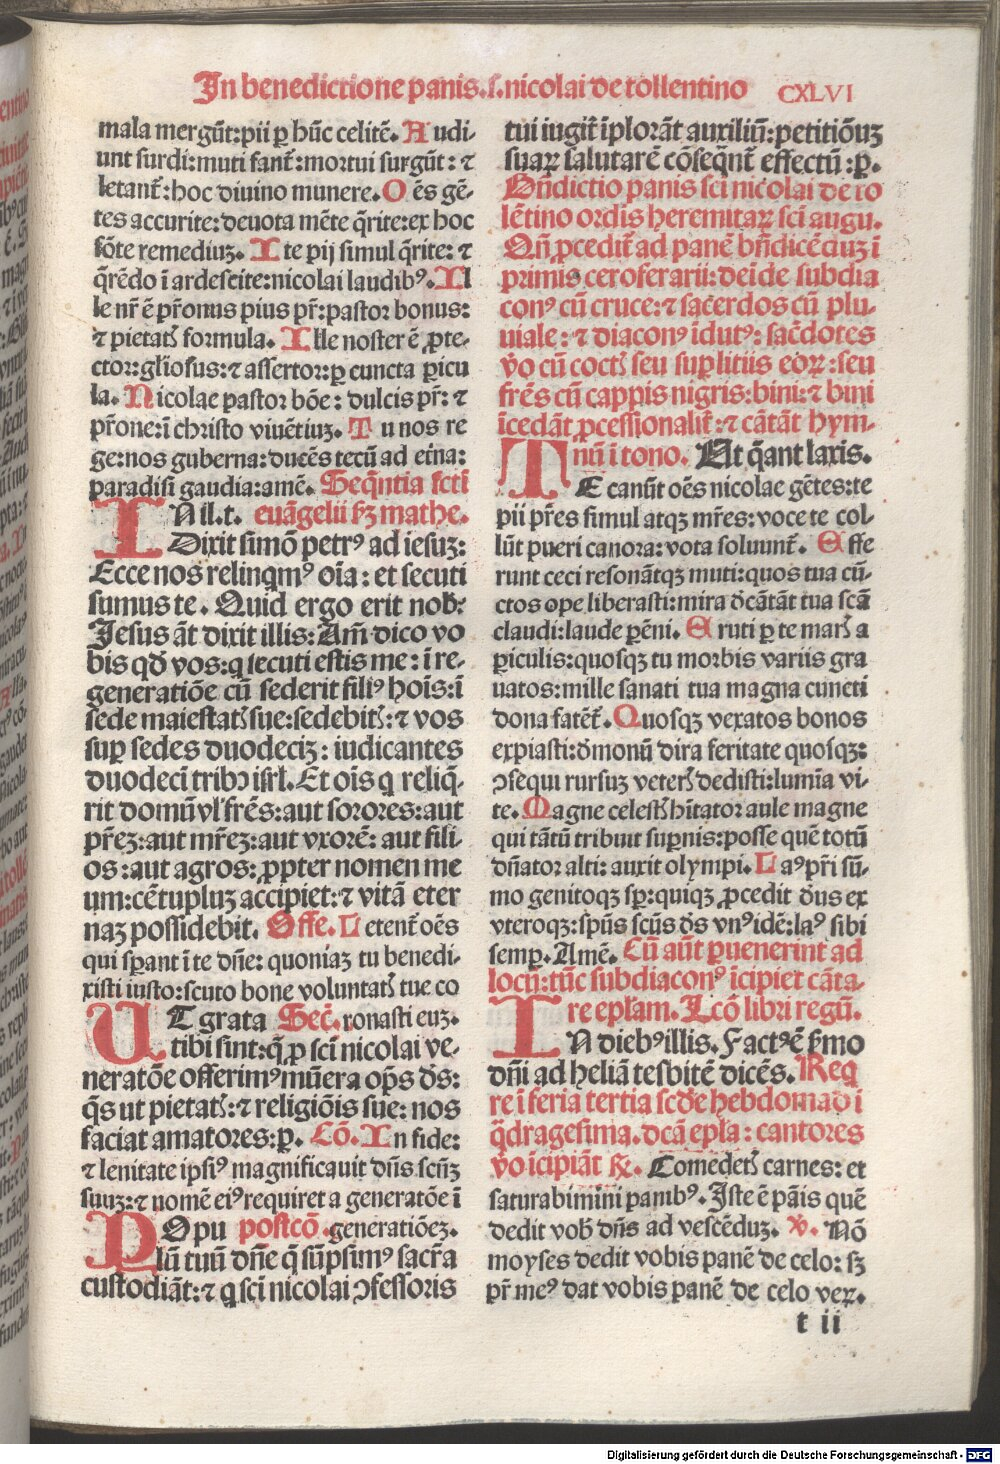 In benedictione panis.s.nicolai de tollentino CXLVI
mala mergūt:pii ꝑ hūc celitē. Audi-
unt surdi:muti fant̄:mortui surgūt: ⁊
letant̄:hoc divino munere. O ēs gē-
tes accurite:devota mēte q̄rite:ex hoc
fōte remediuꝫ. Ite pij simul q̄rite: ⁊
q̄rēdo ī ardescite:nicolai laudibꝰ. Il
le nr̄ ē pr̄onus pius pr̄:pastor bonus:
⁊ pietatꝭ formula. Ille noster ē ꝓte-
ctor:gl̄iosus:⁊ assertor:ꝑ cuncta ꝑicu
la. Nicolae pastor bōe: dulcis pr̄: ⁊
pr̄one:ī christo vivētiuꝫ. Tu nos re
ge:nos guberna:ducēs tecū ad et̄na:
paradisi gaudia:amē. Seq̄ntia scti
IN il.t. evāgelii ẜꝫ mathe.
Dixit simō petrꝰ ad iesuꝫ:
Ecce nos relinqmꝰ oīa: et secuti
sumus te. Quid ergo erit nob̄:
Jesus āt dixit illis: Am̄ dico vo
bis qđ vos:q secuti estis me: ī re-
generatiōe cū sederit filiꝰ hoīs:ī
sede maiestatꝭ sue:sedebitꝭ:⁊ vos
suꝑ sedes duodeciꝫ: iudicantes
duodecī tribꝰ isrl. Et oīs q reliq̄-
rit domū vl' frēs:aut sorores:aut
pr̄eꝫ:aut mr̄eꝫ:aut vxorē: aut fili
os:aut agros: ꝓpter nomen me
um:cētupluꝫ accipiet:⁊ vitā eter
naꝫ possidebit. Offe. Letent̄ oēs
qui sꝑant ī te dn̄e: quoniāꝫ tu benedi-
xisti iusto:scuto bone voluntatꝭ tue co
UT grata Sec̄. ronasti euꝫ.
tibi sint:q̄ ꝓ scī nicolai ve-
neratōe offerimꝰ mūera oꝑs ds̄:
q̄s ut pietatꝭ:⁊ religiōis sue: nos
faciat amatores:ꝑ. Cō. In fide:
⁊ lenitate ipsiꝰ magnificavit dn̄s scn̄ꝫ
suuꝫ:⁊ nomē eiꝰ requiret a generatōe ī
POpu postcō. generatiōeꝫ.
lū tuū dn̄e q̄ sūpsimꝰ sacr̄a
custodiāt:⁊ q scī nicolai ꝯfessoris
tui iugit̄ īplorāt auxiliū:petitiōuꝫ
suaꝝ salutarē cōseqn̄t effectū:ꝑ.
Bn̄dictio panis sci nicolai de to
lētino ordīs heremitaꝝ scī augu.
Qn̄ ꝓcedit̄ ad panē bn̄dicēciuꝫ ī
primis ceroferarii:deīde subdia
conꝰ cū cruce:⁊ sac̄erdos cū plu-
viale: ⁊ diaconꝰ īdutꝰ: sac̄dotes
v̄o cū coctꝭ seu suplitiis eoꝝ:seu
frēs cū cappis nigris:bini:⁊ bini
īcedāt ꝓcessionalit̄:⁊ cātāt hym-
nū ī tono. At q̄ant laxis.
TE canūt oēs nicolae gētes:te
pii pr̄es simul atqꝫ mr̄es:voce te col-
lūt pueri canora:vota soluunt̄. Effe
runt ceci resonātqꝫ muti:quos tua cū-
ctos ope liberasti:mira dcātāt tua scā
claudi:laude ꝑēni. Eruti ꝑ te marꝭ a
ꝑiculis:quosqꝫ tu morbis variis gra
vatos:mille sanati tua magna cuncti
dona fatēt̄. Quosqꝫ vexatos bonos
expiasti:dmonū dira feritate quosqꝫ:
ꝯsequi rursuꝫ veterꝭ dedisti:lumīa vi-
te. Magne celestꝭ hītator aule magne
qui tātū tribuit suꝑnis:posse quē totū
dn̄ator alti: auxit olympi. Laꝰ pr̄i sū-
mo genitoqꝫ sꝑ:quiqꝫ ꝓcedit dn̄s ex
vteroqꝫ:spūs scūs ds̄ vnꝰ idē:laꝰ sibi
semꝑ. Amē. Cū aūt ꝑvenerint ad
locū:tūc subdiaconꝰ īcipiet cāta-
re eplam. Lcō libri regū.
IN diebꝰ illis. Factꝰ ē ẜmo
dn̄i ad heliā tesbitē dicēs. Req
re ī feria tertia scđe hebdomad ī
q̄dragesima. dcā epl̄a: cantores
v̄o īcipiāt ℟. Comedetꝭ carnes: et
saturabimini panibꝰ. Iste ē pāis quē
dedit vobꝭ dn̄s ad vescēduꝫ. ℣. Nō
moyses dedit vobis panē de celo: sꝫ
pr̄ meꝰ dat vobis panē de celo veꝝ.
t ii
Digitalisierung gefördert durch die Deutsche Forschungsgemeinschaft - DFG